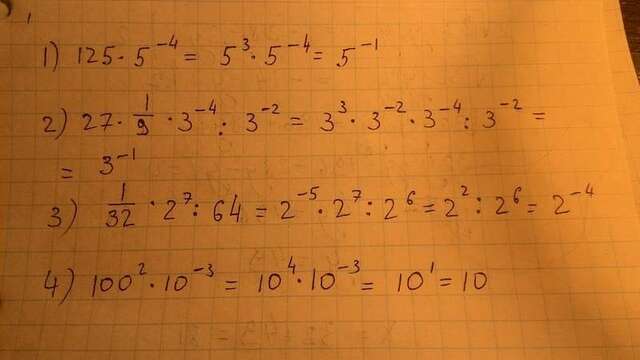 1) 125 · 5⁻⁴ = 5³ · 5⁻⁴ = 5⁻¹
2) 27 · 1/9 · 3⁻⁴ : 3⁻² = 3³ · 3⁻² · 3⁻⁴ : 3⁻² =
= 3⁻¹
3) 1/32 · 2⁷ : 64 = 2⁻⁵ · 2⁷ : 2⁶ = 2² : 2⁶ = 2⁻⁴
4) 100² · 10⁻³ = 10⁴ · 10⁻³ = 10¹ = 10